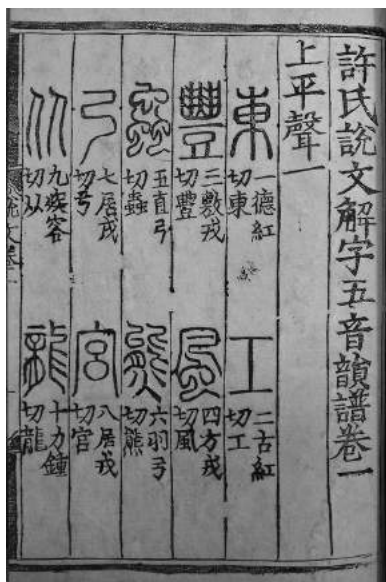 許氏說文解字五音韻譜卷一
上平聲一
東 一德紅切東
工 二古紅切工
豐 三敷戎切豐
風 四方戎切風
蟲 五直弓切蟲
熊 六羽弓切熊
弓 七居戎切弓
宮 八居戎切宮
从 九疾容切从
龍 十力鍾切龍
說文卷一